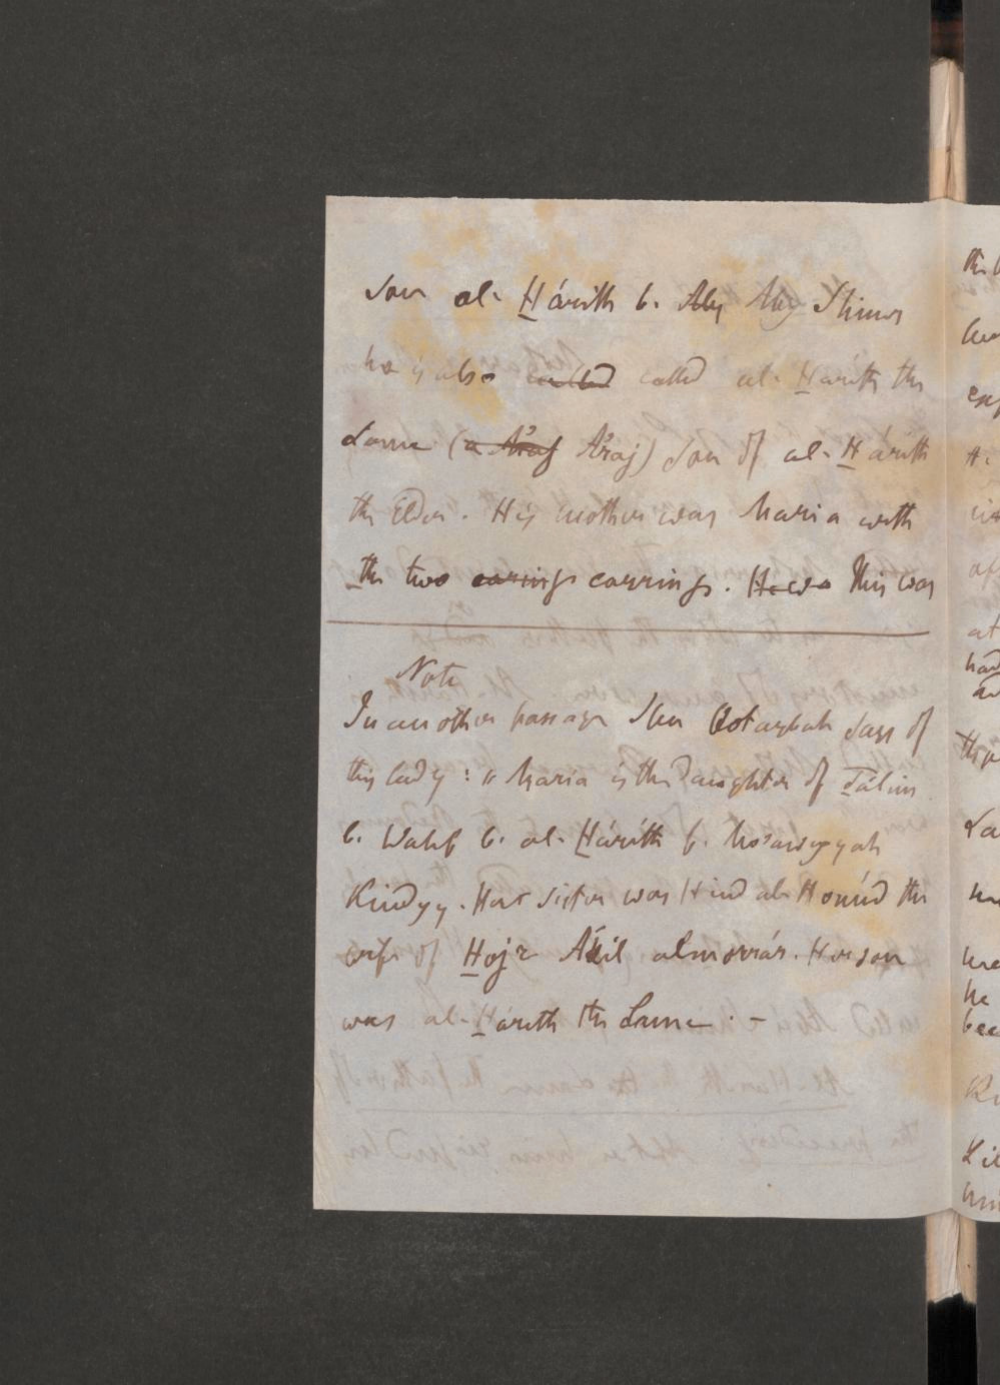 Son al-Hárith b. Aby Aby Shimr
he is also called called al-Hárith the
Lame (a A'raj A'raj) Son of al-Hárith
the Elder. His mother was Maria with
the two earings earrings. He was This was
Note
In another passage Ibn Qotaybah says of
this lady: "Maria is the Daughter of Tálim
b. Wahb b. al-Hárith b. Mo'awiyyah
Kindyy. Her sister was Hind al-Honúd the
wife of Hojr Ákil almorrár. Her son
was al-Hárith the Lame. -